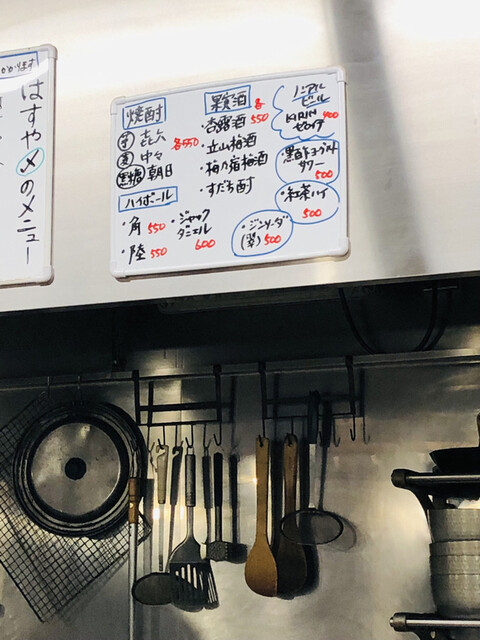 かります
はすや〆のメニュー
焼酎
芋 㐂久 各550
麦 中々
黒糖 朝日
ハイボール
・角 550
・陸 550
・ジャック
ダニエル
600
果実酒 各
550
・杏露酒
・立山梅酒
・梅乃宿梅酒
・すだち酎
・ジンソーダ
(翠) 500
ノンアル
ビール
KIRIN 400
ゼロイチ
・黒酢ヨーグルト
サワー
500
・紅茶ハイ
500